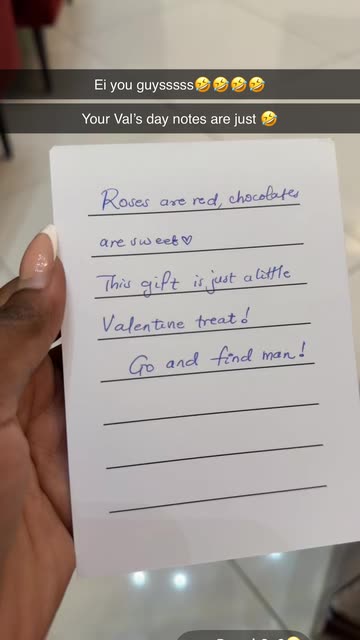 Ei you guysssss🤣🤣🤣🤣
Your Val's day notes are just 🤣
Roses are red, chocolates
are sweet♡
This gift is just a little
Valentine treat!
Go and find man!